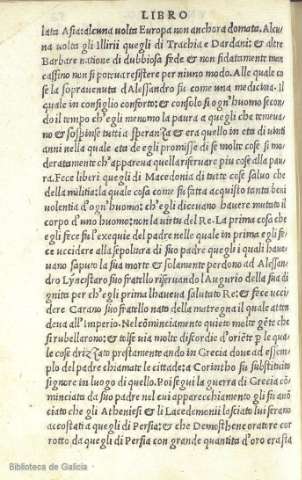 LIBRO
lata Asia: alcuna uolta Europa non anchora domata. Alcu
na uolta gli Illirii quegli di Trachia e Dardani: & altre
Barbare natione di dubbiosa fede & non fidatamente men
cassino non si poteua resistere per niuno modo. Alle quale co
se la soprauenuta d'Alessandro fu come una medicina. Il
quale in consiglio confortò: & consolò si ogn'huomo secon
do il tempo ch'egli menomo la paura a quegli che temeua
no & sospinse tutti a speranza & era quello in età di uinti
anni nella quale eta de egli promisse di se molte cose si mo
deratamente ch'appareua quella riseruare piu cose alla pau
ra. Fece liberi quegli di Macedonia di tutte cose saluo che
della militia: la quale cosa come fu fatta acquisto tanta beni
uolentia d'ogn'huomo: ch'egli diceuano hauere mutato il
corpo d'uno huomo: non la uirtu del Re. La prima cosa che
egli fece fu l'exequie del padre nelle quale in prima egli fe
ce uccidere alla sepoltura di suo padre quegli i quali haue
uano saputo la sua morte & solamente perdono ad Alessan
dro Lyncestaro suo fratello riseruando l'Augurio della sua di
gnita per ch'egli prima lhaueua salutato Re: & fece ucci
dere Carano suo fratello nato della matregna il quale atten
deua all'Imperio. Nel cōminciamento quieto molte gēte che
si rubellarono: & tolse uia molte discordie d'oriēte per le qua
le cose drizzato prestamente ando in Grecia doue ad essem
plo del padre chiamate le cittade: a Corintho fu substituito
signore in luogo di quello. Poi seguì la guerra di Grecia cō
minciata da suo padre nel cui apparecchiamento gli fu anū
ciato che gli Atheniesi & li Lacedemonii lasciato lui serano
accostati a quegli di Persia: & che Demosthene oratore cor
rotto da quegli di Persia con grande quantita d'oro era sta
Biblioteca de Galicia